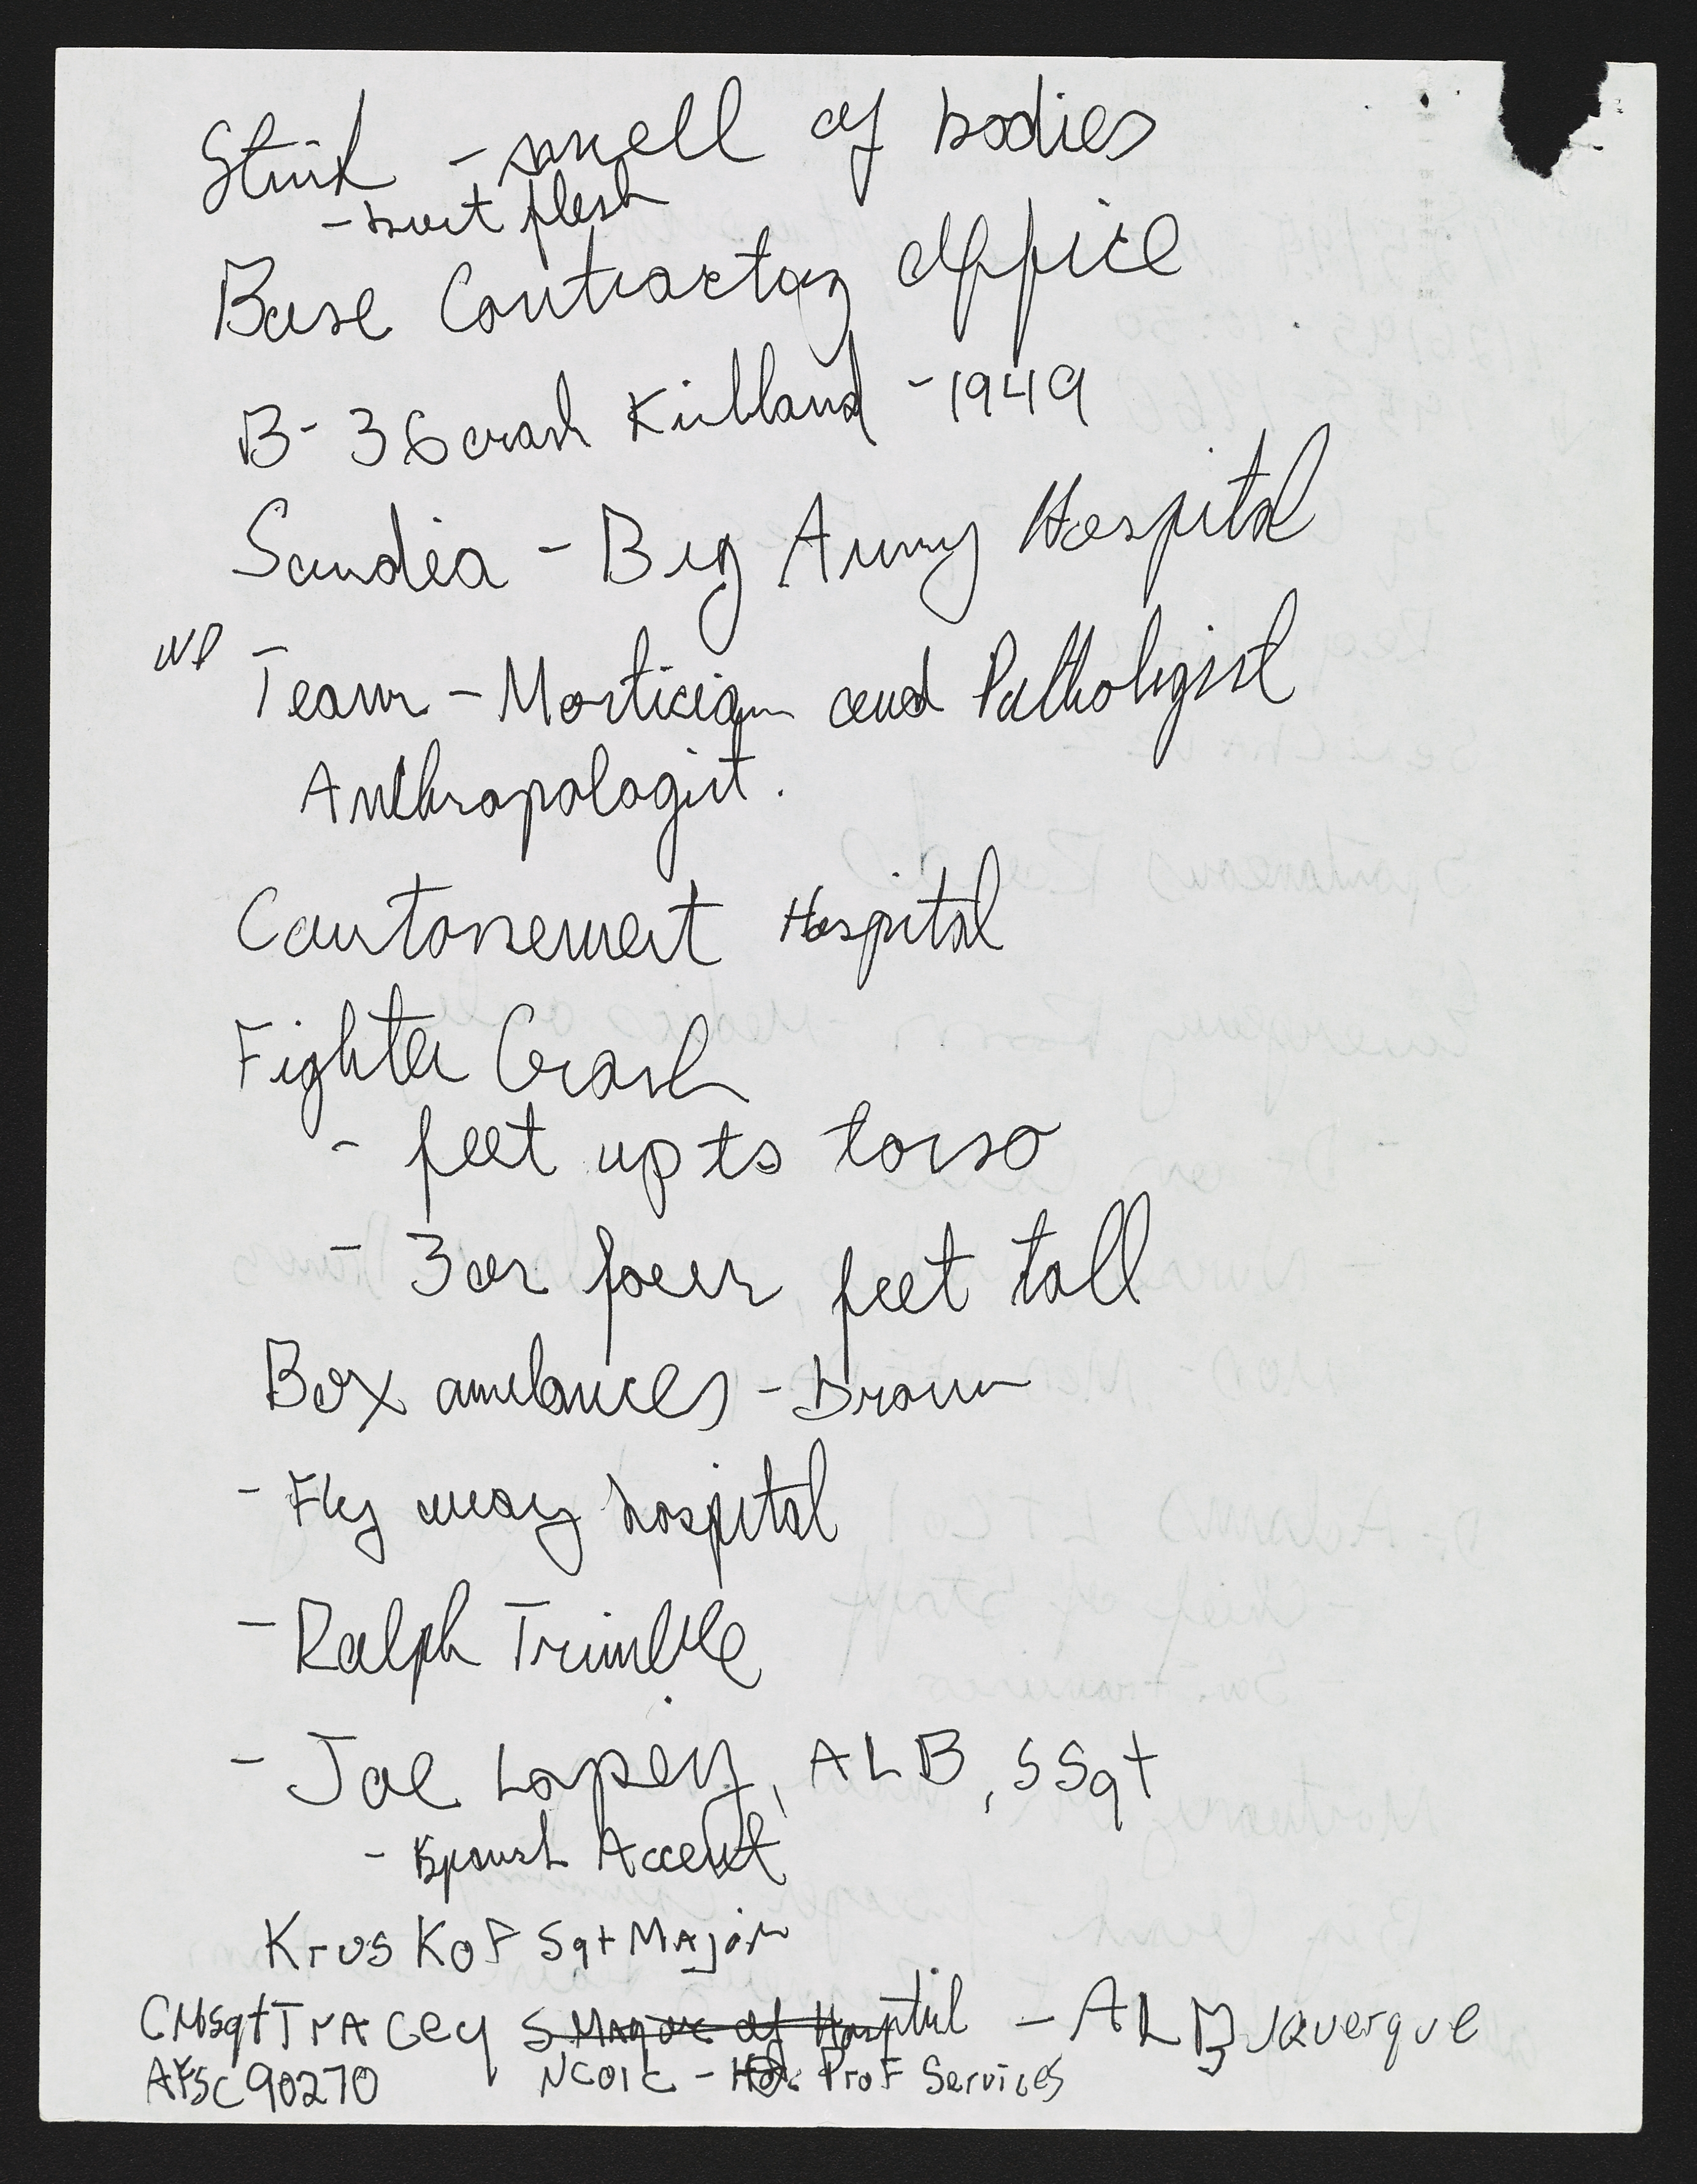 Stink - smell of bodies
- burt flesh
Base Contractor Office
B-36 crash Kirtland - 1949
Sandia - Big Army Hospital
WP
Team - Mortician and Pathologist
Anthropologist.
Cantonement Hospital
Fighter Crash
- feet up to torso
- 3 or four feet tall
Box ambances - Brown
- Fly away hospital
- Ralph Trimble
- Joe Lopez, ALB, SSgt
- Spansh Accent
KrusKoF Sgt MAjor
CMSgt TrACey S Major of Hosptil - ALBuquerque
AFSC 90270 NCOIC - Prof Services